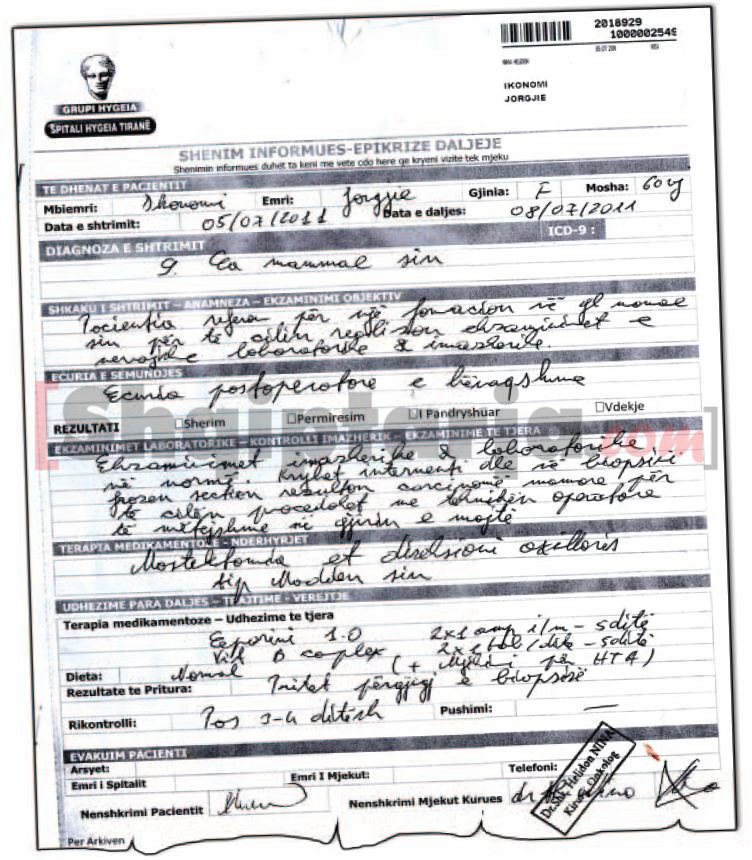 2018929
1000002549
NINA HELIDON
IKONOMI
JORGJIE
GRUPI HYGEIA
SPITALI HYGEIA TIRANË
SHENIM INFORMUES-EPIKRIZE DALJEJE
Shenimin informues duhët ta keni me vete cdo here qe kryeni vizite tek mjeku
TE DHENAT E PACIENTIT
Mbiemri: Ikonomi Emri: Jorgjie Gjinia: F Mosha: 60 vj
Data e shtrimit: 05/07/2011 Data e daljes: 08/07/2011
DIAGNOZA E SHTRIMIT ICD-9 :
Ca mammae sin
SHKAKU I SHTRIMIT – ANAMNEZA – EKZAMINIMI OBJEKTIV
Pacientja referon për një formacion në gl mamae
sin për të cilin realizon ekzaminimet e
nevojshme laboratorike & imazherike.
ECURIA E SEMUNDJES
Ecuria postoperatore e kënaqshme
REZULTATI □Sherim □Permiresim □I Pandryshuar □Vdekje
Shqiptarja.com
EKZAMINIMET LABORATORIKE – KONTROLLI IMAZHERIK – EKZAMINIME TE TJERA
Ekzaminimet imazherike & laboratorike
në normë. Kryhet interventi dhe në biopsinë
frozen section rezulton carcinomë mamare për
të cilën procedohet me teknikën operatore
të mëtejshme në gjirin e majtë
TERAPIA MEDIKAMENTOZE - NDERHYRJET
Mastektomia et diseksioni axillaris
tip Madden sin
UDHEZIME PARA DALJES – TRAJTIME - VEREJTJE
Terapia medikamentoze – Udhezime te tjera
1.0 2x1 amp i/m - 5ditë
Vit B complex 2x1 tab/ditë - 5ditë
Dieta: Normal (+ Mjekimi për HTA)
Rezultate te Pritura: Pritet përgjigjja e biopsisë
Rikontrolli: Pas 3-4 ditësh Pushimi: —
EVAKUIM PACIENTI
Arsyet: Telefoni:
Emri i Spitalit Emri I Mjekut:
Nenshkrimi Pacientit Nenshkrimi Mjekut Kurues
Dr.Shk. Helidon NINA
Kirurg Onkolog
Per Arkiven